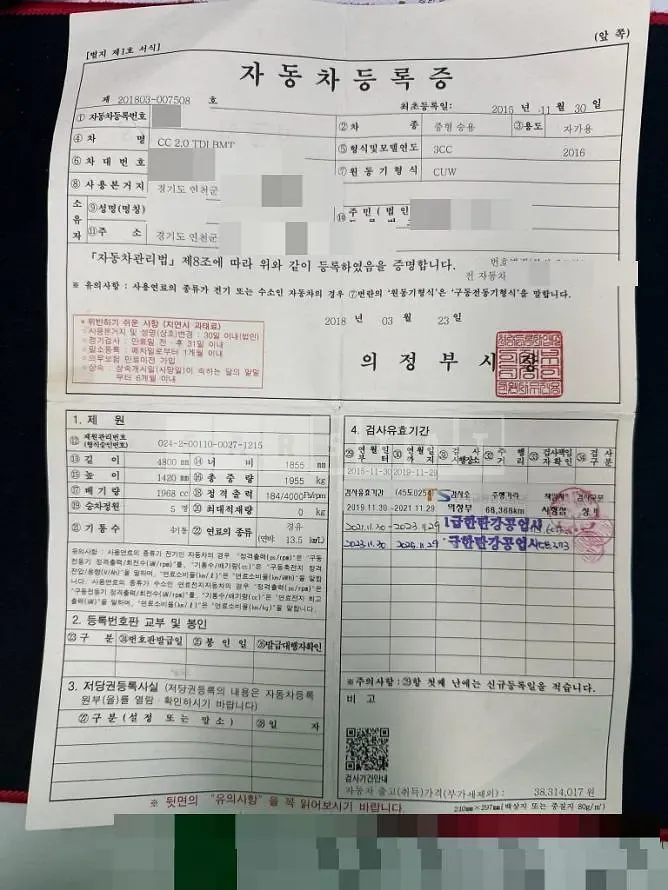 [별지 제1호 서식]
(앞 쪽)
자동차등록증
제 201803-007508 호
최초등록일: 2015 년 11 월 30 일
① 자동차등록번호
② 차 종 중형 승용 ③용도 자가용
④ 차 명 CC 2.0 TDI BMT
⑤ 형식및모델연도 3CC 2016
⑥ 차 대 번 호
⑦ 원 동 기 형 식 CUW
⑧ 사용본거지 경기도 연천군
소유자
⑨성명(명칭)
⑩ 주민(법인
⑪주 소 경기도 연천군
「자동차관리법」 제8조에 따라 위와 같이 등록하였음을 증명합니다.
전 자동차
※ 유의사항 : 사용연료의 종류가 전기 또는 수소인 자동차의 경우 ⑦번란의 '원동기형식'은 '구동전동기형식'을 말합니다.
2018 년 03 월 23 일
* 위반하기 쉬운 사항 (지연시 과태료)
○사용본거지 및 성명(상호)변경 : 30일 이내(법인)
○정기검사 : 만료일 전·후 31일 이내
○말소등록 : 폐차일로부터 1개월 이내
○의무보험 만료이전 가입
○상속 : 상속개시일(사망일)이 속하는 달의 말일부터 6개월 이내
의 정 부 시 장
1. 제 원
⑫ 제원관리번호 (형식승인번호) 024-2-00110-0027-1215
⑬ 길 이 4800 mm ⑭ 너 비 1855 mm
⑮ 높 이 1420 mm ⑯ 총 중 량 1955 kg
⑰ 배 기 량 1968 cc ⑱ 정격출력 184/4000 Ps/rpm
⑲ 승차정원 5 명 ⑳ 최대적재량 0 kg
㉑ 기 통 수 4기통 ㉒ 연료의 종류 경유
(연비: 13.5 km/L)
유의사항 : 사용연료의 종류가 전기인 자동차의 경우 "정격출력(ps/rpm)"은 "구동
전동기 정격출력/회전수(kW/rpm)"를, "기통수/배기량(cc)"은 "구동축전지 정격
전압/용량(V/Ah)"을 말하며, "연료소비율(km/ℓ)"은 "연료소비율(km/kWh)"을 말합
니다. 사용연료의 종류가 수소인 연료전지자동차의 경우 "정격출력(ps/rpm)"은
2. 등록번호판 교부 및 봉인
㉓구 분 ㉔번호판발급일 ㉕봉 인 일 ㉖발급대행자확인
3. 저당권등록사실 (저당권등록의 내용은 자동차등록
원부(을)를 열람·확인하시기 바랍니다)
㉗구 분 (설 정 또는 말 소) ㉘일 자
4. 검사유효기간
㉙연월일부터 ㉚연월일까지 ㉛검사시행장소 ㉜주행거리 ㉝검사책임자확인 ㉞검사구분
2015-11-30 2019-11-29
검사유효기간 검사소 주행거리
2019.11.30 - 2021.11.29 의정부 68,368km
2021.11.30 - 2023.11.29 1급한탄강공업사
한탄강공업사
※주의사항:㉙항 첫째 난에는 신규등록일을 적습니다.
비 고
검사기간안내
자동차 출고(취득)가격(부가세제외): 38,314,017 원
※ 뒷면의 "유의사항"을 꼭 읽어보시기 바랍니다.
210mm×297mm(백상지 또는 중질지 80g/㎡)